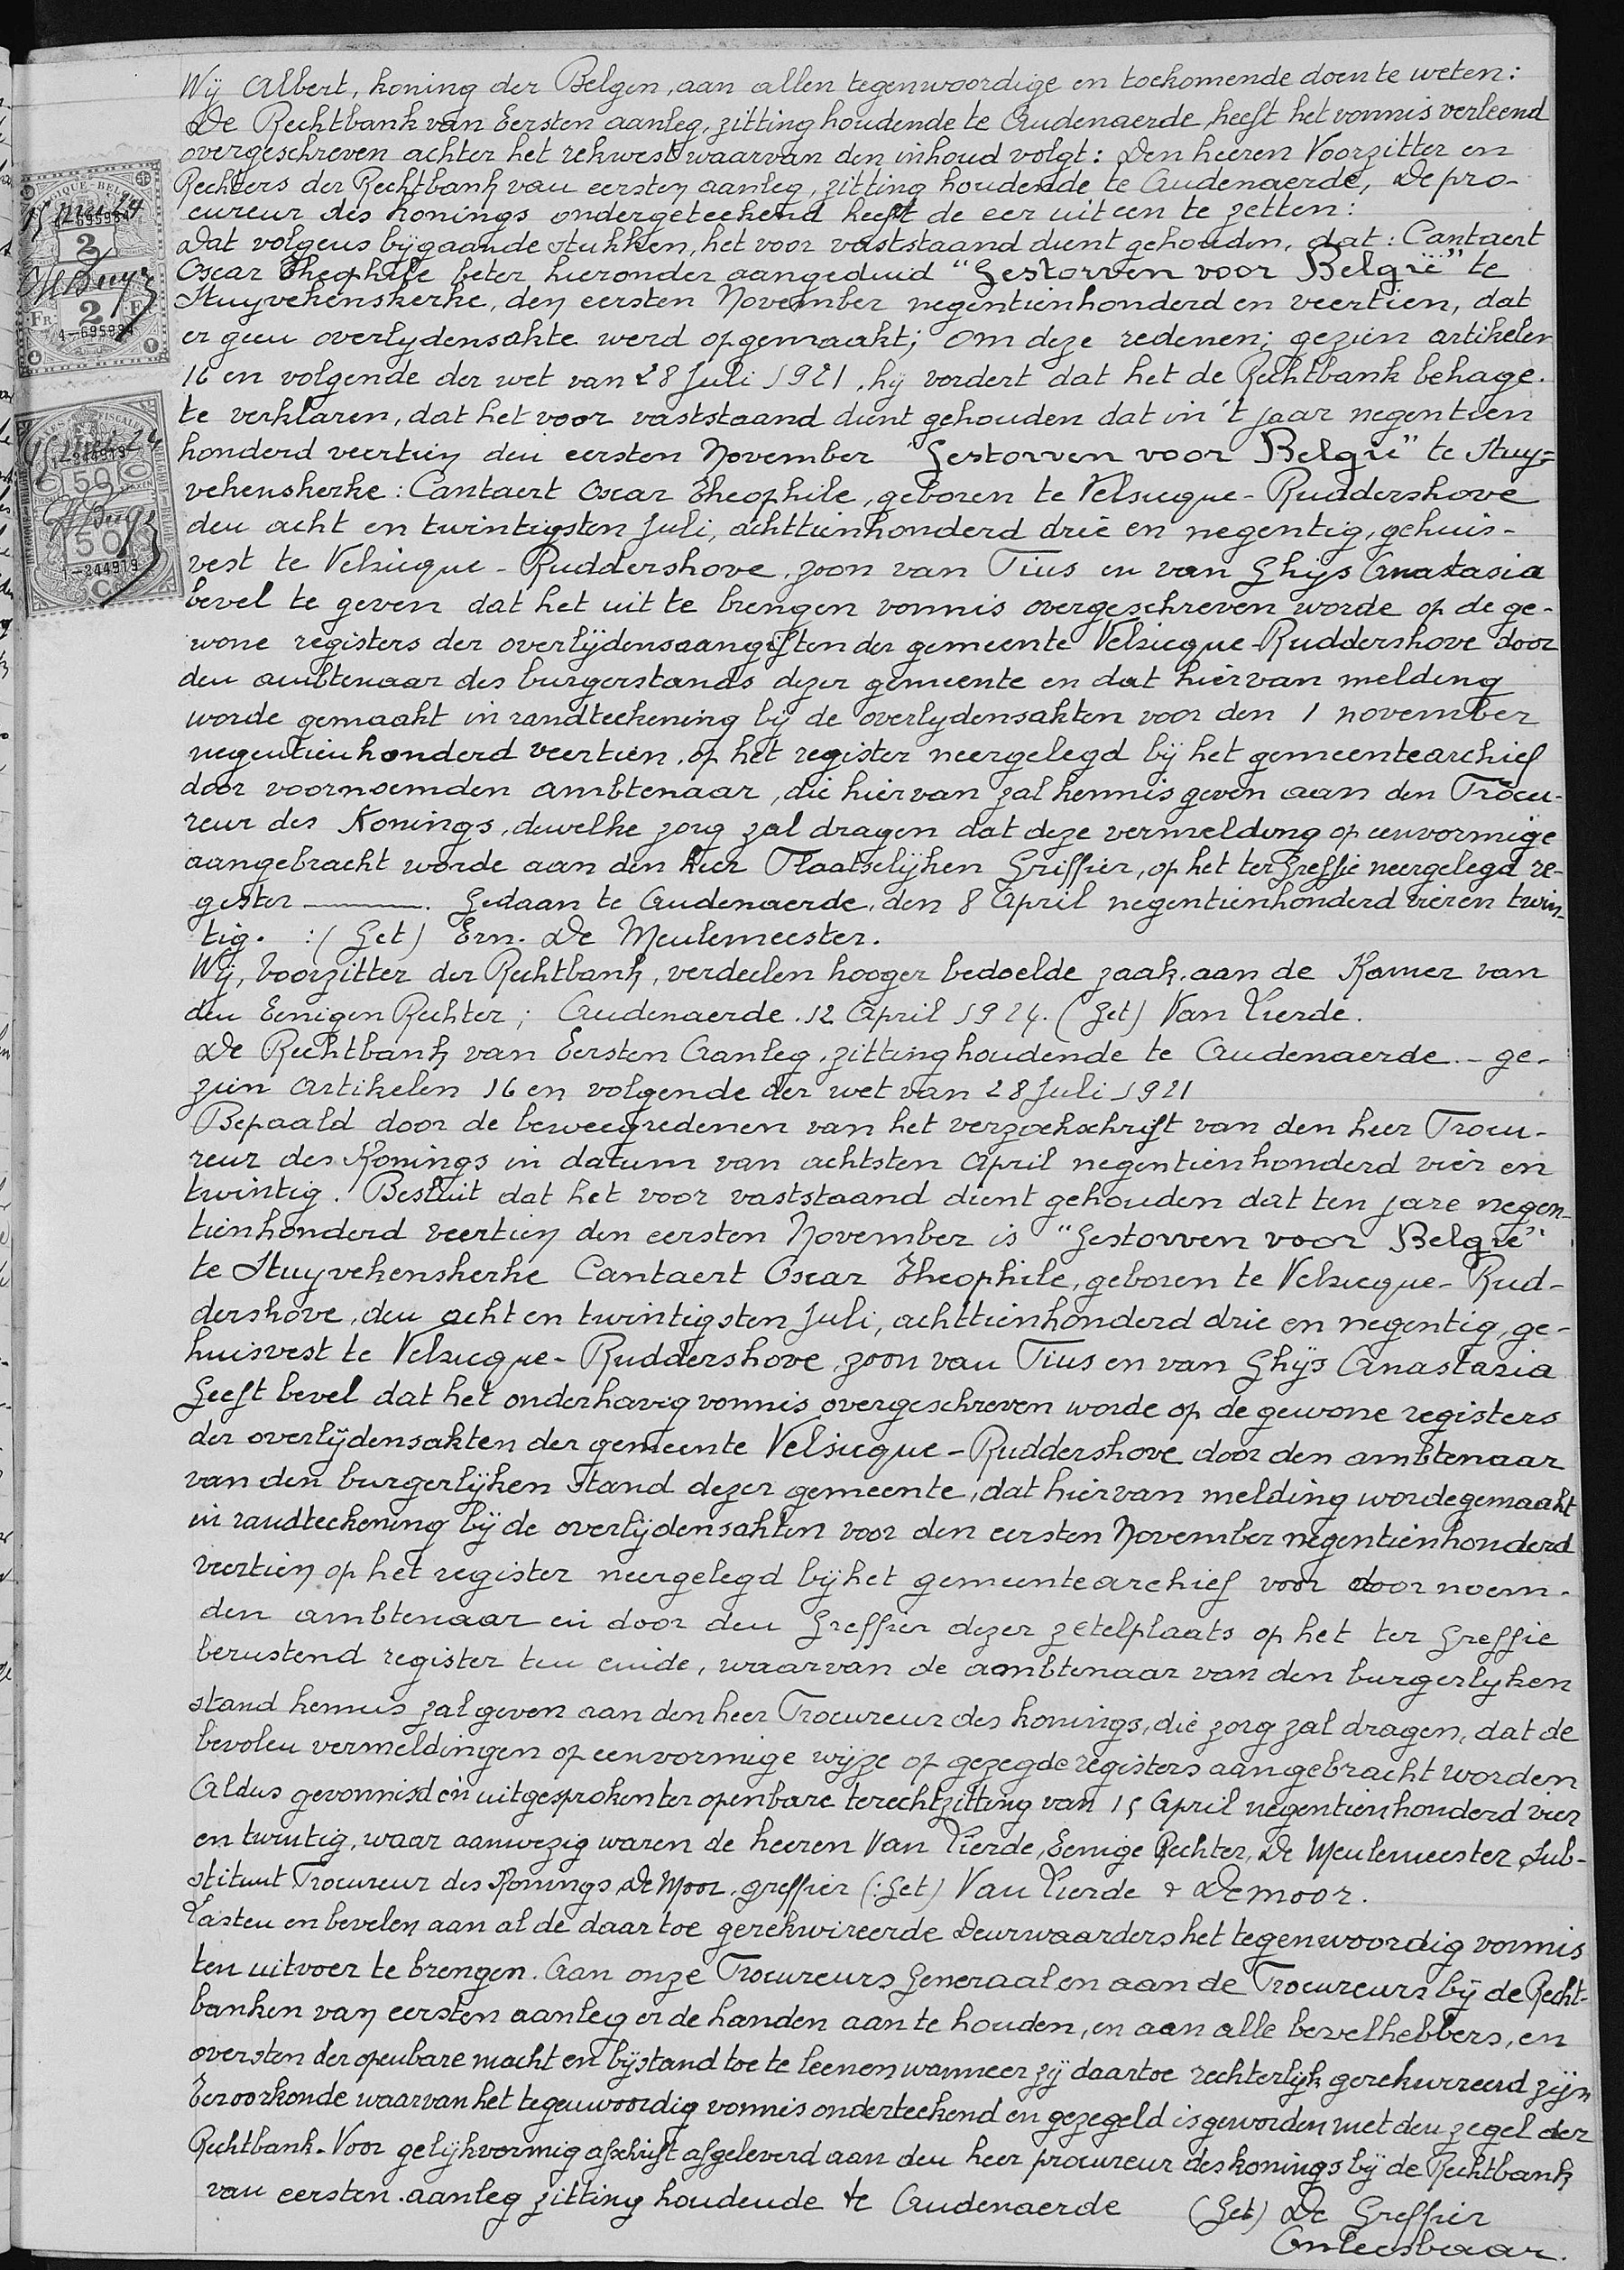 Wij Albert, koning der Belgen, aan allen tegenwoordige en toekomende doen te weten:
De Rechtbank van Eersten aanleg, zitting houdende te Audenaerde, heeft het vonnis verleend
overgeschreven achter het rekwest waarvan den inhoud volgt: Den heeren Voorzitter en
Rechters der Rechtbank van eersten aanleg, zitting houdende te Audenaerde, De pro-
cureur des konings ondergeteekend heeft de eer uiteen te zetten:
Dat volgens bijgaande stukken, het voor vaststaand dient gehouden, dat: Cantaert
Oscar Theophile beter hieronder aangeduid "Gestorven voor België" te
Stuyvekenskerke, den eersten November negentienhonderd en veertien, dat
er geen overlydensakte werd opgemaakt; Om deze redenen; gezien artikelen
16 en volgende der wet van 28 Juli 1921, hij vordert dat het de Rechtbank behage.
te verklaren, dat het voor vaststaand dient gehouden dat in 't jaar negentien
honderd veertien den eersten November "Gestorven voor België" te Stuy=
vekenskerke: Cantaert Oscar Theophile, geboren te Velsicque-Ruddershove
den acht en twintigsten Juli, achttienhonderd drie en negentig, gehuis-
vest te Velsicque-Ruddershove, zoon van Pius en van Ghijs Anastasia
bevel te geven dat het uit te brengen vonnis overgeschreven worde op de ge-
wone registers der overlijdensaangiften der gemeente Velsicque-Ruddershove door
den ambtenaar des burgerstands dezer gemeente en dat hiervan melding
worde gemaakt in randteekening bij de overlydensakten voor den 1 november
negentienhonderd veertien, op het register neergelegd bij het gemeentearchief
door voornoemden ambtenaar, die hiervan zal kennis geven aan den Procu-
reur des Konings, dewelke zorg zal dragen dat deze vermelding op eenvormige
aangebracht worde aan den hier Plaatselijken Griffier, op het ter Greffie neergelegd re-
gister ———. Gedaan te Audenaerde, den 8 April negentienhonderd vieren twin-
tig. :(Get) Ern. De Meulemeester.
Wij, Voorzitter der Rechtbank, verdeelen hooger bedoelde zaak aan de Kamer van
den Eenigen Rechter; Audenaerde. 12 April 1924. (Get) Van Lierde.
De Rechtbank van Eersten Aanleg, zitting houdende te Audenaerde. - ge-
zien artikelen 16 en volgende der wet van 28 Juli 1921
Bepaald door de beweegredenen van het verzoekschrift van den heer Procu-
reur des Konings in datum van achtsten April negentienhonderd vier en
twintig. Besluit dat het voor vaststaand dient gehouden dat ten jare negen-
tienhonderd veertien den eersten November is "Gestorven voor België"
te Stuyvekenskerke Cantaert Oscar Theophile, geboren te Velsicque-Rud-
dershove, den acht en twintigsten Juli, achttienhonderd drie en negentig, ge-
huisvest te Velsicque-Ruddershove, zoon van Pius en van Ghijs Anastasia
Geeft bevel dat het onderhavig vonnis overgeschreven worde op de gewone registers
der overlijdensakten der gemeente Velsicque-Ruddershove door den ambtenaar
van den burgerlijken stand dezer gemeente, dat hiervan melding worde gemaakt
in randteekening bij de overlijdensakten voor den eersten November negentienhonderd
veertien op het register neergelegd bij het gemeentearchief voor door noem-
den ambtenaar en door den Greffier dezer zetelplaats op het ter Greffie
berustend register ten einde, waarvan de ambtenaar van den burgerlyken
stand kennis zal geven aan den heer Procureur des konings, die zorg zal dragen, dat de
bevolen vermeldingen op eenvormige wijze op gezegde registers aangebracht worden
Aldus gevonnisd en uitgesproken ter openbare terechtzitting van 15 April negentienhonderd vier
en twintig, waar aanwezig waren de heeren Van Lierde, Eenige Rechter, De Meulemeester Sub-
stituut Procureur des Konings De Moor, greffier (:Get) Van Lierde & Demoor.
Lasten en bevelen aan al de daartoe gerekwireerde Deurwaarders het tegenwoordig vonnis
ten uitvoer te brengen. Aan onze Procureurs Generaal en aan de Procureurs bij de Recht-
banken van eersten aanleg er de handen aan te houden, en aan alle bevelhebbers, en
oversten der openbare macht en bijstand toe te leenen wanneer zij daartoe rechterlijk gerekwireerd zijn
Ter oorkonde waarvan het tegenwoordig vonnis onderteekend en gezegeld is geworden met den zegel der
Rechtbank. Voor gelijkvormig afschrift afgeleverd aan den heer procureur des konings bij de Rechtbank
van eersten aanleg zitting houdende te Audenaerde (Get) De Greffier
Onleesbaar.
2
FR 2 F
4-695894
50 C
50
1-244919
C